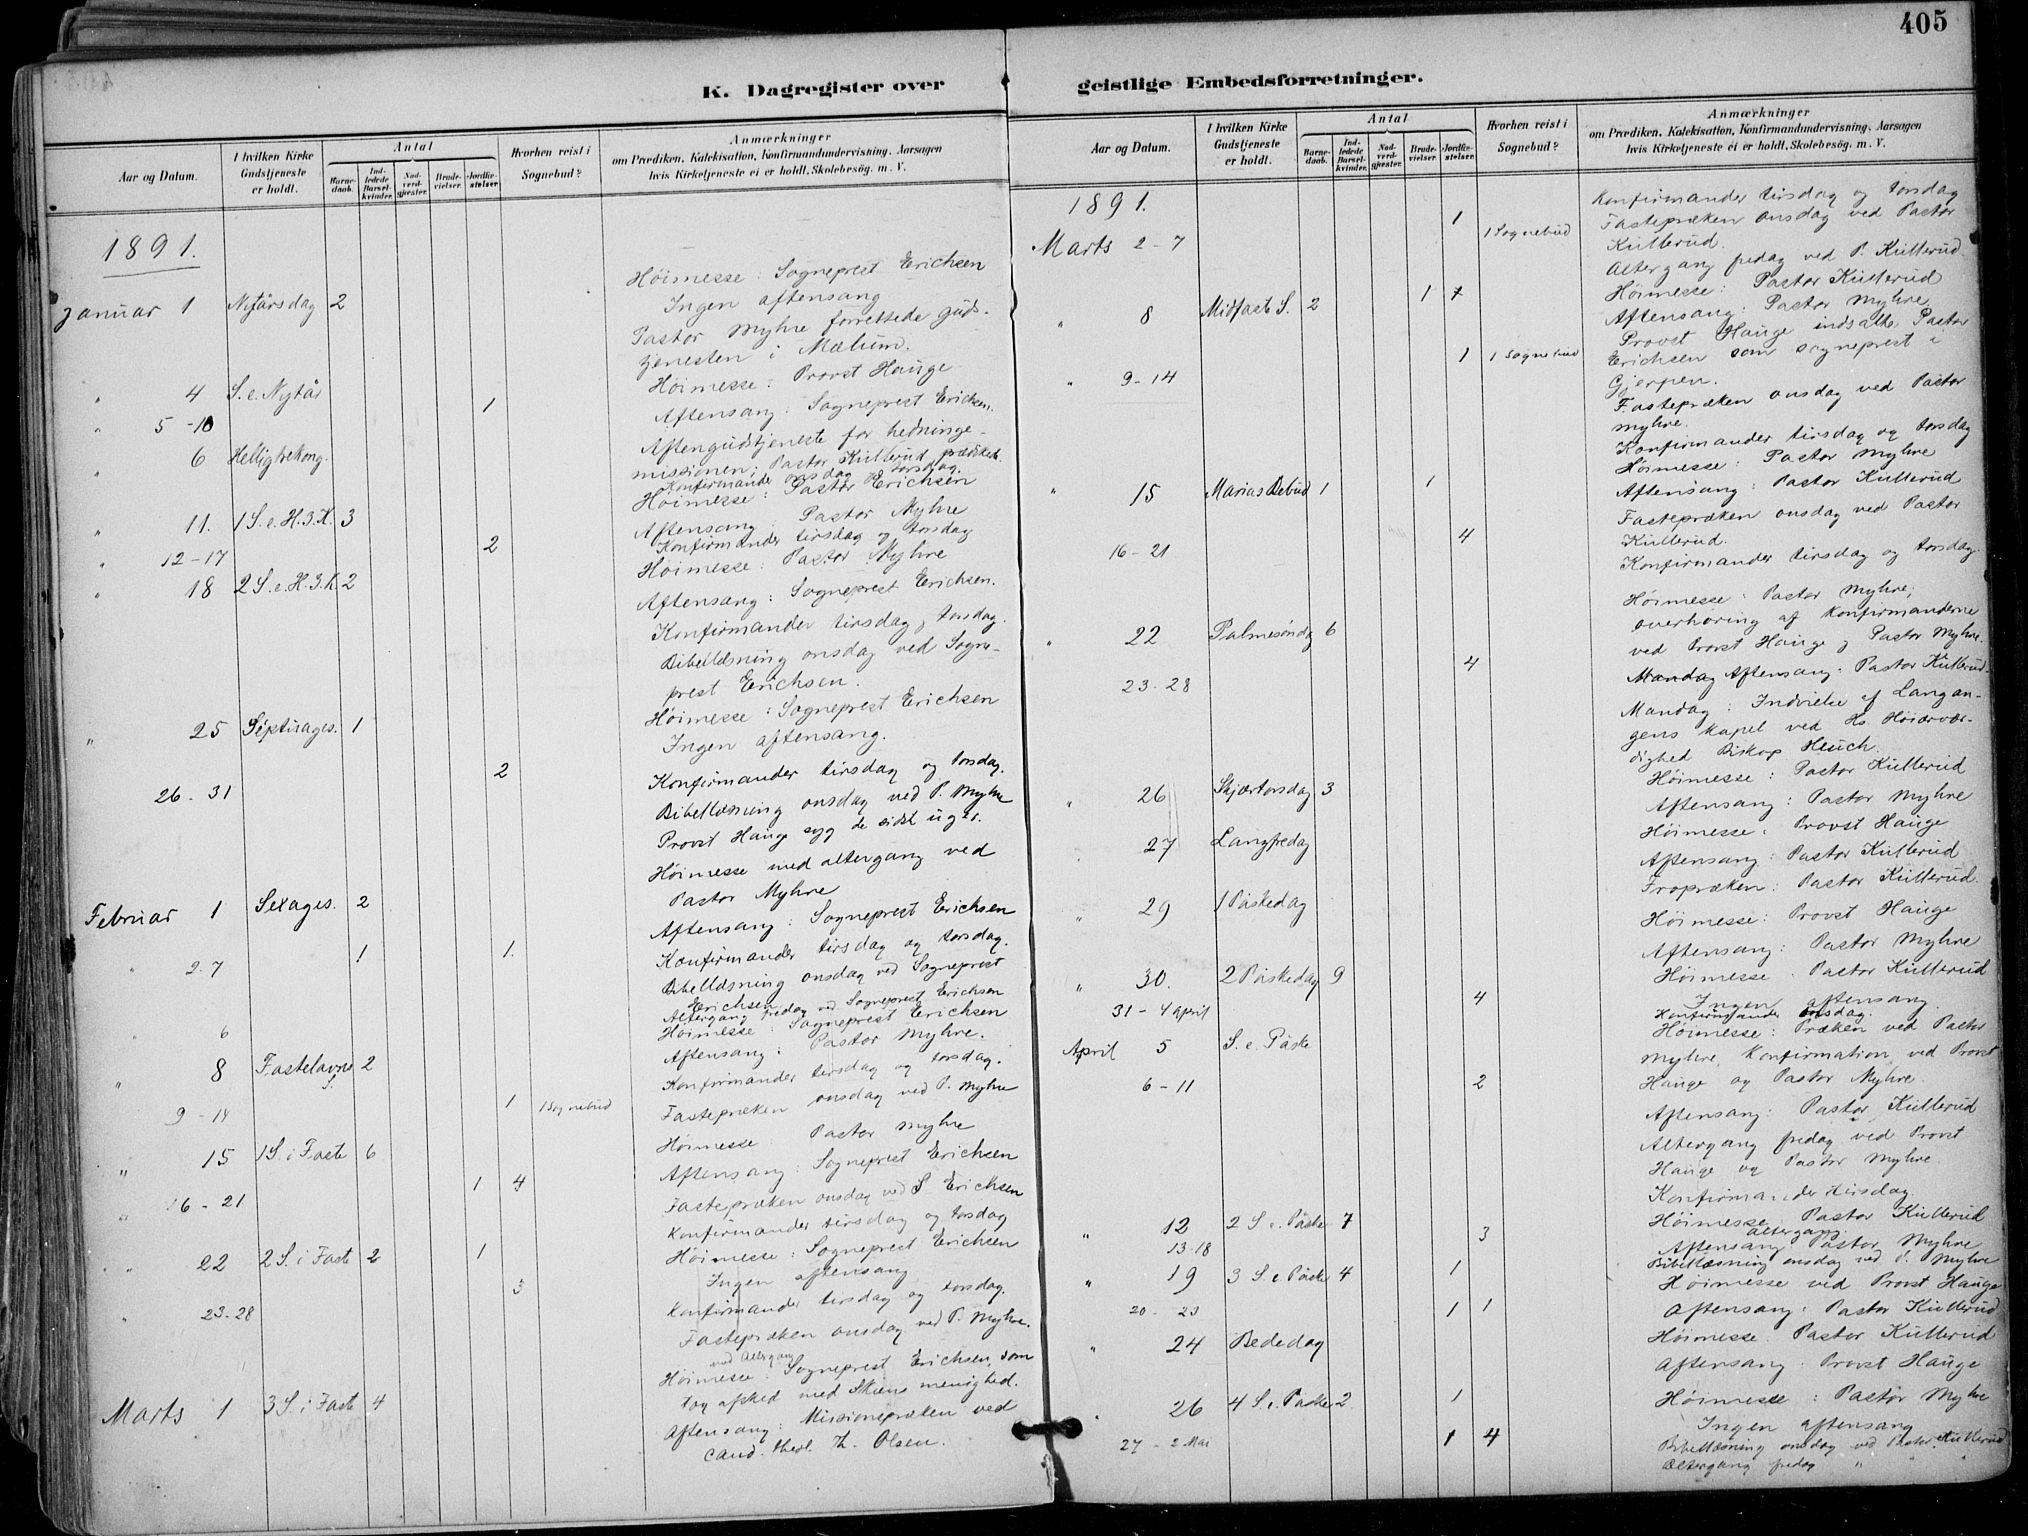 405
K. Dagregister over
geistlige Embedsforretninger.
Aar og Datum.
I hvilken Kirke
Gudstjeneste
er holdt.
Antal
Barne-
daab.
Ind-
ledede
Barsel-
kvinder.
Nad-
verd-
gjester.
Brude-
vielser.
Jordfæ-
stelser.
Hvorhen reist i
Sognebud?
Anmærkninger
om Prædiken, Katekisation, Konfirmandundervisning, Aarsagen
hvis Kirketjeneste ei er holdt, Skolebesøg. m. V.
1891.
Høimesse: Sogneprest Erichsen
Januar 1 Nytårsdag 2
Ingen aftensang
Pastor Myhre forrettede guds-
tjenesten i Mælum.
" 4 S. e. Nytår
Høimesse: Provst Hauge
Aftensang: Sogneprest Erichsen.
" 5-10 1
" 6 Helligtrekong.
Aftengudstjeneste for hedninge-
missionen; Pastor Kullerud prædiket.
Konfirmander onsdag torsdag.
" 11. 1 S. e. H. 3. K. 3
Høimesse: Pastor Erichsen
Aftensang: Pastor Myhre
" 12-17 2
Konfirmander tirsdag og torsdag
" 18 2 S. e. H. 3. K. 2
Høimesse: Pastor Myhre
Aftensang: Sogneprest Erichsen.
Konfirmander tirsdag, torsdag.
Bibellæsning onsdag ved Sogne-
prest Erichsen.
" 25 Septuages. 1
Høimesse: Sogneprest Erichsen
Ingen aftensang.
26-31 2
Konfirmander tirsdag og torsdag.
Bibellæsning onsdag ved P. Myhre
Provst Hauge syg de sidst uger.
Februar 1 Sexages. 2
Høimesse med altergang ved
Pastor Myhre
Aftensang: Sogneprest Erichsen
" 2-7 1 1.
Konfirmander tirsdag og torsdag.
Bibellæsning onsdag ved Sogneprest
Erichsen
6
Altergang fredag ved Sogneprest Erichsen
" 8 Fastelavns S. 2
Høimesse: Sogneprest Erichsen
Aftensang: Pastor Myhre.
9-14 1 1 Sognebud
Konfirmander tirsdag og torsdag.
Fastepræken onsdag ved P. Myhre
" 15 1 S. i Faste 6
Høimesse: Pastor Myhre
Aftensang: Sogneprest Erichsen
" 16-21 1 4
Fastepræken onsdag ved S. Erichsen
Konfirmander tirsdag og torsdag
" 22 2 S. i Faste 2 1
Høimesse: Sogneprest Erichsen
Ingen aftensang
" 23-28 3
Konfirmander tirsdag og torsdag.
Fastepræken onsdag ved P. Myhre.
ved Altergang
Marts 1 3 S. i Faste 4
Høimesse: Sogneprest Erichsen, som
tog afsked med Skiens menighed.
Aftensang: Missionspræken ved
cand. theol. Z. Olsen.
Aar og Datum.
I hvilken Kirke
Gudstjeneste
er holdt.
Antal
Barne-
daab.
Ind-
ledede
Barsel-
kvinder.
Nad-
verd-
gjester.
Brude-
vielser.
Jordfæ-
stelser.
Hvorhen reist i
Sognebud?
Anmærkninger
om Prædiken, Katekisation, Konfirmandundervisning, Aarsagen
hvis Kirketjeneste ei er holdt, Skolebesøg. m. V.
1891.
Marts 2-7 1 1 Sognebud
Konfirmander tirsdag og torsdag
Fastepræken onsdag ved Pastor
Kullerud.
Altergang fredag ved P. Kullerud.
" 8 Midfaste S. 2 1
Høimesse: Pastor Kullerud
Aftensang: Pastor Myhre
Provst Hauge indsatte Pastor
Erichsen som sogneprest i
Gjerpen.
" 9-14 1 1 Sognebud
Fastepræken onsdag ved Pastor
Myhre.
Konfirmander tirsdag og torsdag
" 15 Marias Bebud 1 1
Høimesse: Pastor Myhre
Aftensang: Pastor Kullerud
16-21 4
Fastepræken onsdag ved Pastor
Kullerud.
Konfirmander tirsdag og torsdag.
" 22 Palmesøndg 6
Høimesse: Pastor Myhre;
overhøring af konfirmanderne
ved Provst Hauge og Pastor Myhre.
23-28 4
Mandag Aftensang: Pastor Kullerud.
Mandag: Indvielse af Langan-
gens kapel ved Hs. Høiærvær-
dighed Biskop Heuch.
" 26 Skjærtorsdag 3
Høimesse: Pastor Kullerud
Aftensang: Pastor Myhre
27 Langfredag
Høimesse: Provst Hauge
Aftensang: Pastor Kullerud
" 29 1 Påskedag
Fropræken: Pastor Kullerud.
Høimesse: Provst Hauge
Aftensang: Pastor Myhre
" 30. 2 Påskedag 9
Høimesse: Pastor Kullerud
Ingen aftensang.
31-4 April 4
Konfirmander onsdag.
April 5 S. e. Påske
Høimesse: Præken ved Pastor
Myhre, Konfirmation ved Provst
Hauge og Pastor Myhre.
6-11 2
Aftensang: Pastor Kullerud
Altergang fredag ved Provst
Hauge og Pastor Myhre.
Konfirmander tirsdag.
" 12 2 S. e. Påske 7
Høimesse Pastor Kullerud
altergang.
Aftensang Pastor Myhre
13-18 3
Bibellæsning onsdag ved P. Myhre
" 19 3 S. e Påske 4 1
Høimesse ved Provst Hauge
Aftensang: Pastor Kullerud
20-23 1 1
" 24 Bededag
Høimesse: Pastor Kullerud
Aftensang: Provst Hauge
" 26 4 S. e. Påske 2 1
Høimesse: Pastor Myhre
Ingen aftensang
27-2 Mai 1 4
Bibellæsning onsdag ved Pastor Kullerud
Altergang fredag " "